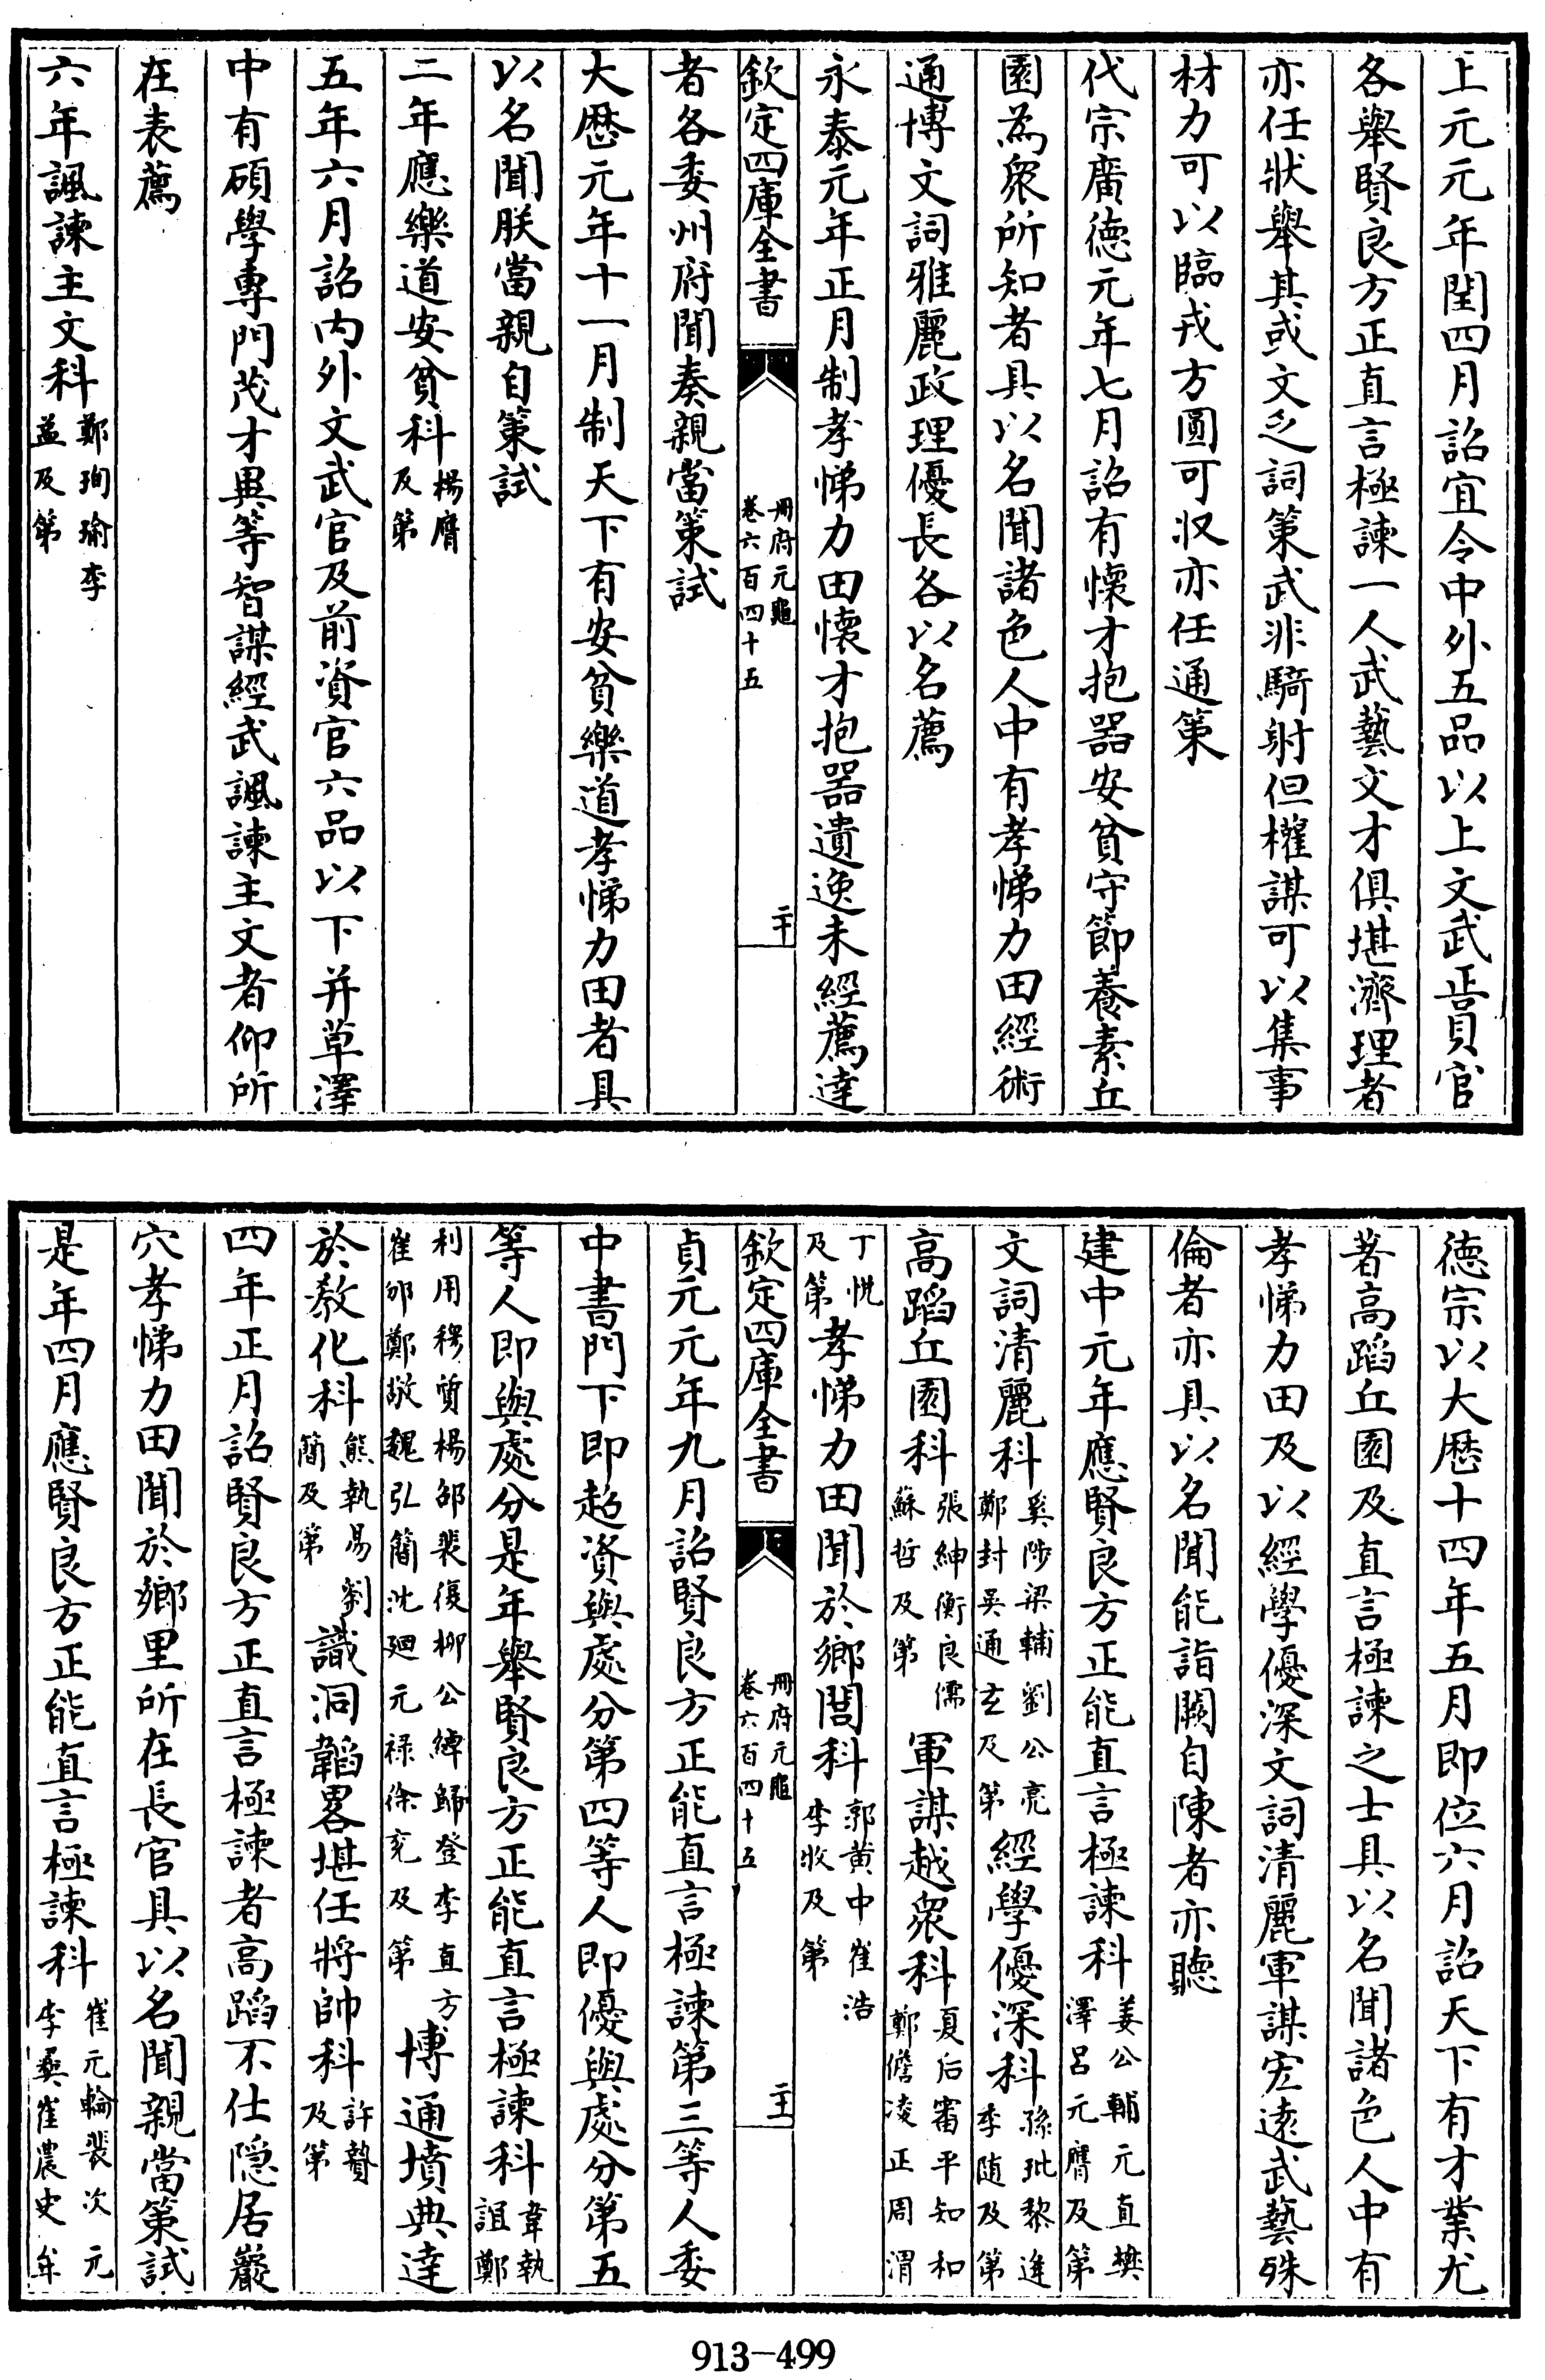 上元元年閏四月詔宜令中外五品以上文武正員官
各舉賢良方正直言極諫一人武藝文才俱堪濟理者
亦任狀舉其或文乏詞策武非騎射但權謀可以集事
材力可以臨戎方圓可収亦任通策
代宗廣德元年七月詔有懷才抱器安貧守節養素丘
園為衆所知者具以名聞諸色人中有孝悌力田經術
通博文詞雅麗政理優長各以名薦
永泰元年正月制孝悌力田懷才抱器遺逸未經薦達
欽定四庫全書
冊府元龜
卷六百四十五
二十
者各委州府聞奏親當策試
大厯元年十一月制天下有安貧樂道孝悌力田者具
以名聞朕當親自策試
二年應樂道安貧科楊膺
及第
五年六月詔内外文武官及前資官六品以下并草澤
中有碩學專門茂才異等智謀經武諷諫主文者仰所
在表薦
六年諷諫主文科鄭珣瑜李
益及第
德宗以大厯十四年五月即位六月詔天下有才業尤
著高蹈丘園及直言極諫之士具以名聞諸色人中有
孝悌力田及以經學優深文詞清麗軍謀宏遠武藝殊
倫者亦具以名聞能詣闕自陳者亦聽
建中元年應賢良方正能直言極諫科姜公輔元直樊
澤呂元膺及第
文詞清麗科奚陟梁輔劉公亮
鄭封吳通玄及第經學優深科孫玭黎逢
李隨及第
高蹈丘園科張紳衡良儒
蘇哲及第軍謀越衆科夏后審平知和
鄭儋凌正周渭
丁悅
及第孝悌力田聞於鄉閭科郭黄中崔浩
李收及第
欽定四庫全書
冊府元龜
卷六百四十五
二十一
貞元元年九月詔賢良方正能直言極諫第三等人委
中書門下即超資與處分第四等人即優與處分第五
等人即與處分是年舉賢良方正能直言極諫科韋執
誼鄭
利用穆質楊邵裴復柳公綽歸登李直方
崔邠鄭敬魏弘簡沈廻元禄徐兖及第博通墳典達
於教化科熊執易劉
簡及第識洞韜畧堪任將帥科許贄
及第
四年正月詔賢良方正直言極諫者高蹈不仕隱居巖
穴孝悌力田聞於鄉里所在長官具以名聞親當策試
是年四月應賢良方正能直言極諫科崔元輪裴次元
李彝崔農史牟
913-499